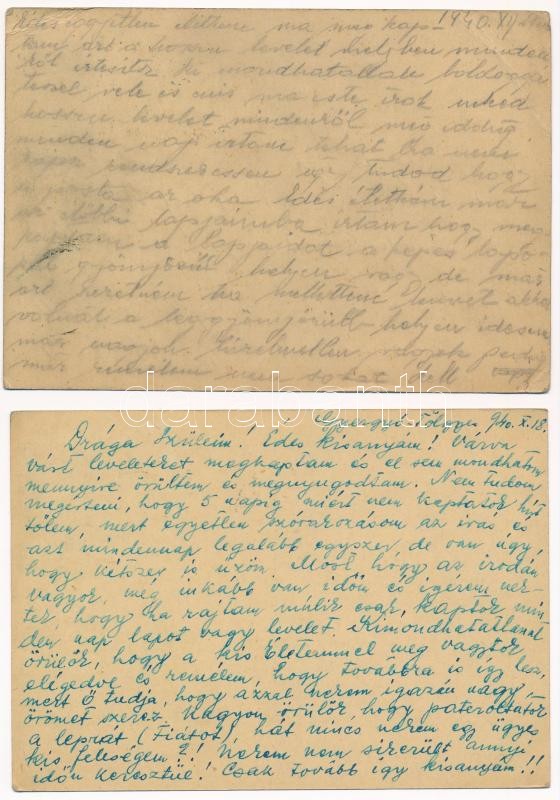 1940. XII
Édes egyetlen életkém ma meg kap-
tam azt a hosszú levelet melyben minden-
ről értesítsz ki mondhatatlan boldoggá
tettél vele és én is ma este írok neked
hosszú levelet mindenről még eddig
minden nap írtam tehát ha nem
kapsz rendszeresen úgy tudod hogy
a posta az oka Édes életkém már
az előbbi lapjaimba írtam hogy meg-
kaptam a lapjaidat a képes lapo-
gyönyörű helyen vagy de már
azt szeretném ha mellettem lennél akkor
volnál a leggyönyörűbb helyen idesen
már nagyon türelmetlen vagyok
már nem sokat kell
darabanth
1940. X. 18.
Drága Szüleim. Édes kisanyám! Várva
várt leveleteket megkaptam és el sem mondhatom
mennyire örültem és megnyugodtam. Nem tudom
megérteni, hogy 5 napig miért nem kaptatok hírt
tőlem, mert egyetlen szórakozásom az írás és
azt mindennap legalább egyszer de van úgy,
hogy kétszer is űzöm. Most hogy az irodán
vagyok, még inkább van időm és ígérem nek-
tek, hogy ha rajtam múlik csak, kaptok min-
den nap lapot vagy levelet. Kimondhatatlanul
örülök, hogy a kis Életemmel meg vagytok
elégedve és remélem, hogy továbbra is így lesz,
mert ő tudja, hogy azzal nekem igazán nagy
örömet szerez. Nagyon örülök hogy
a leprát (Fiatot), hát nincs nekem egy ügyes
kis feleségem?! Nekem nem sikerült annyi
időn keresztül! Csak tovább így kisanyám!!